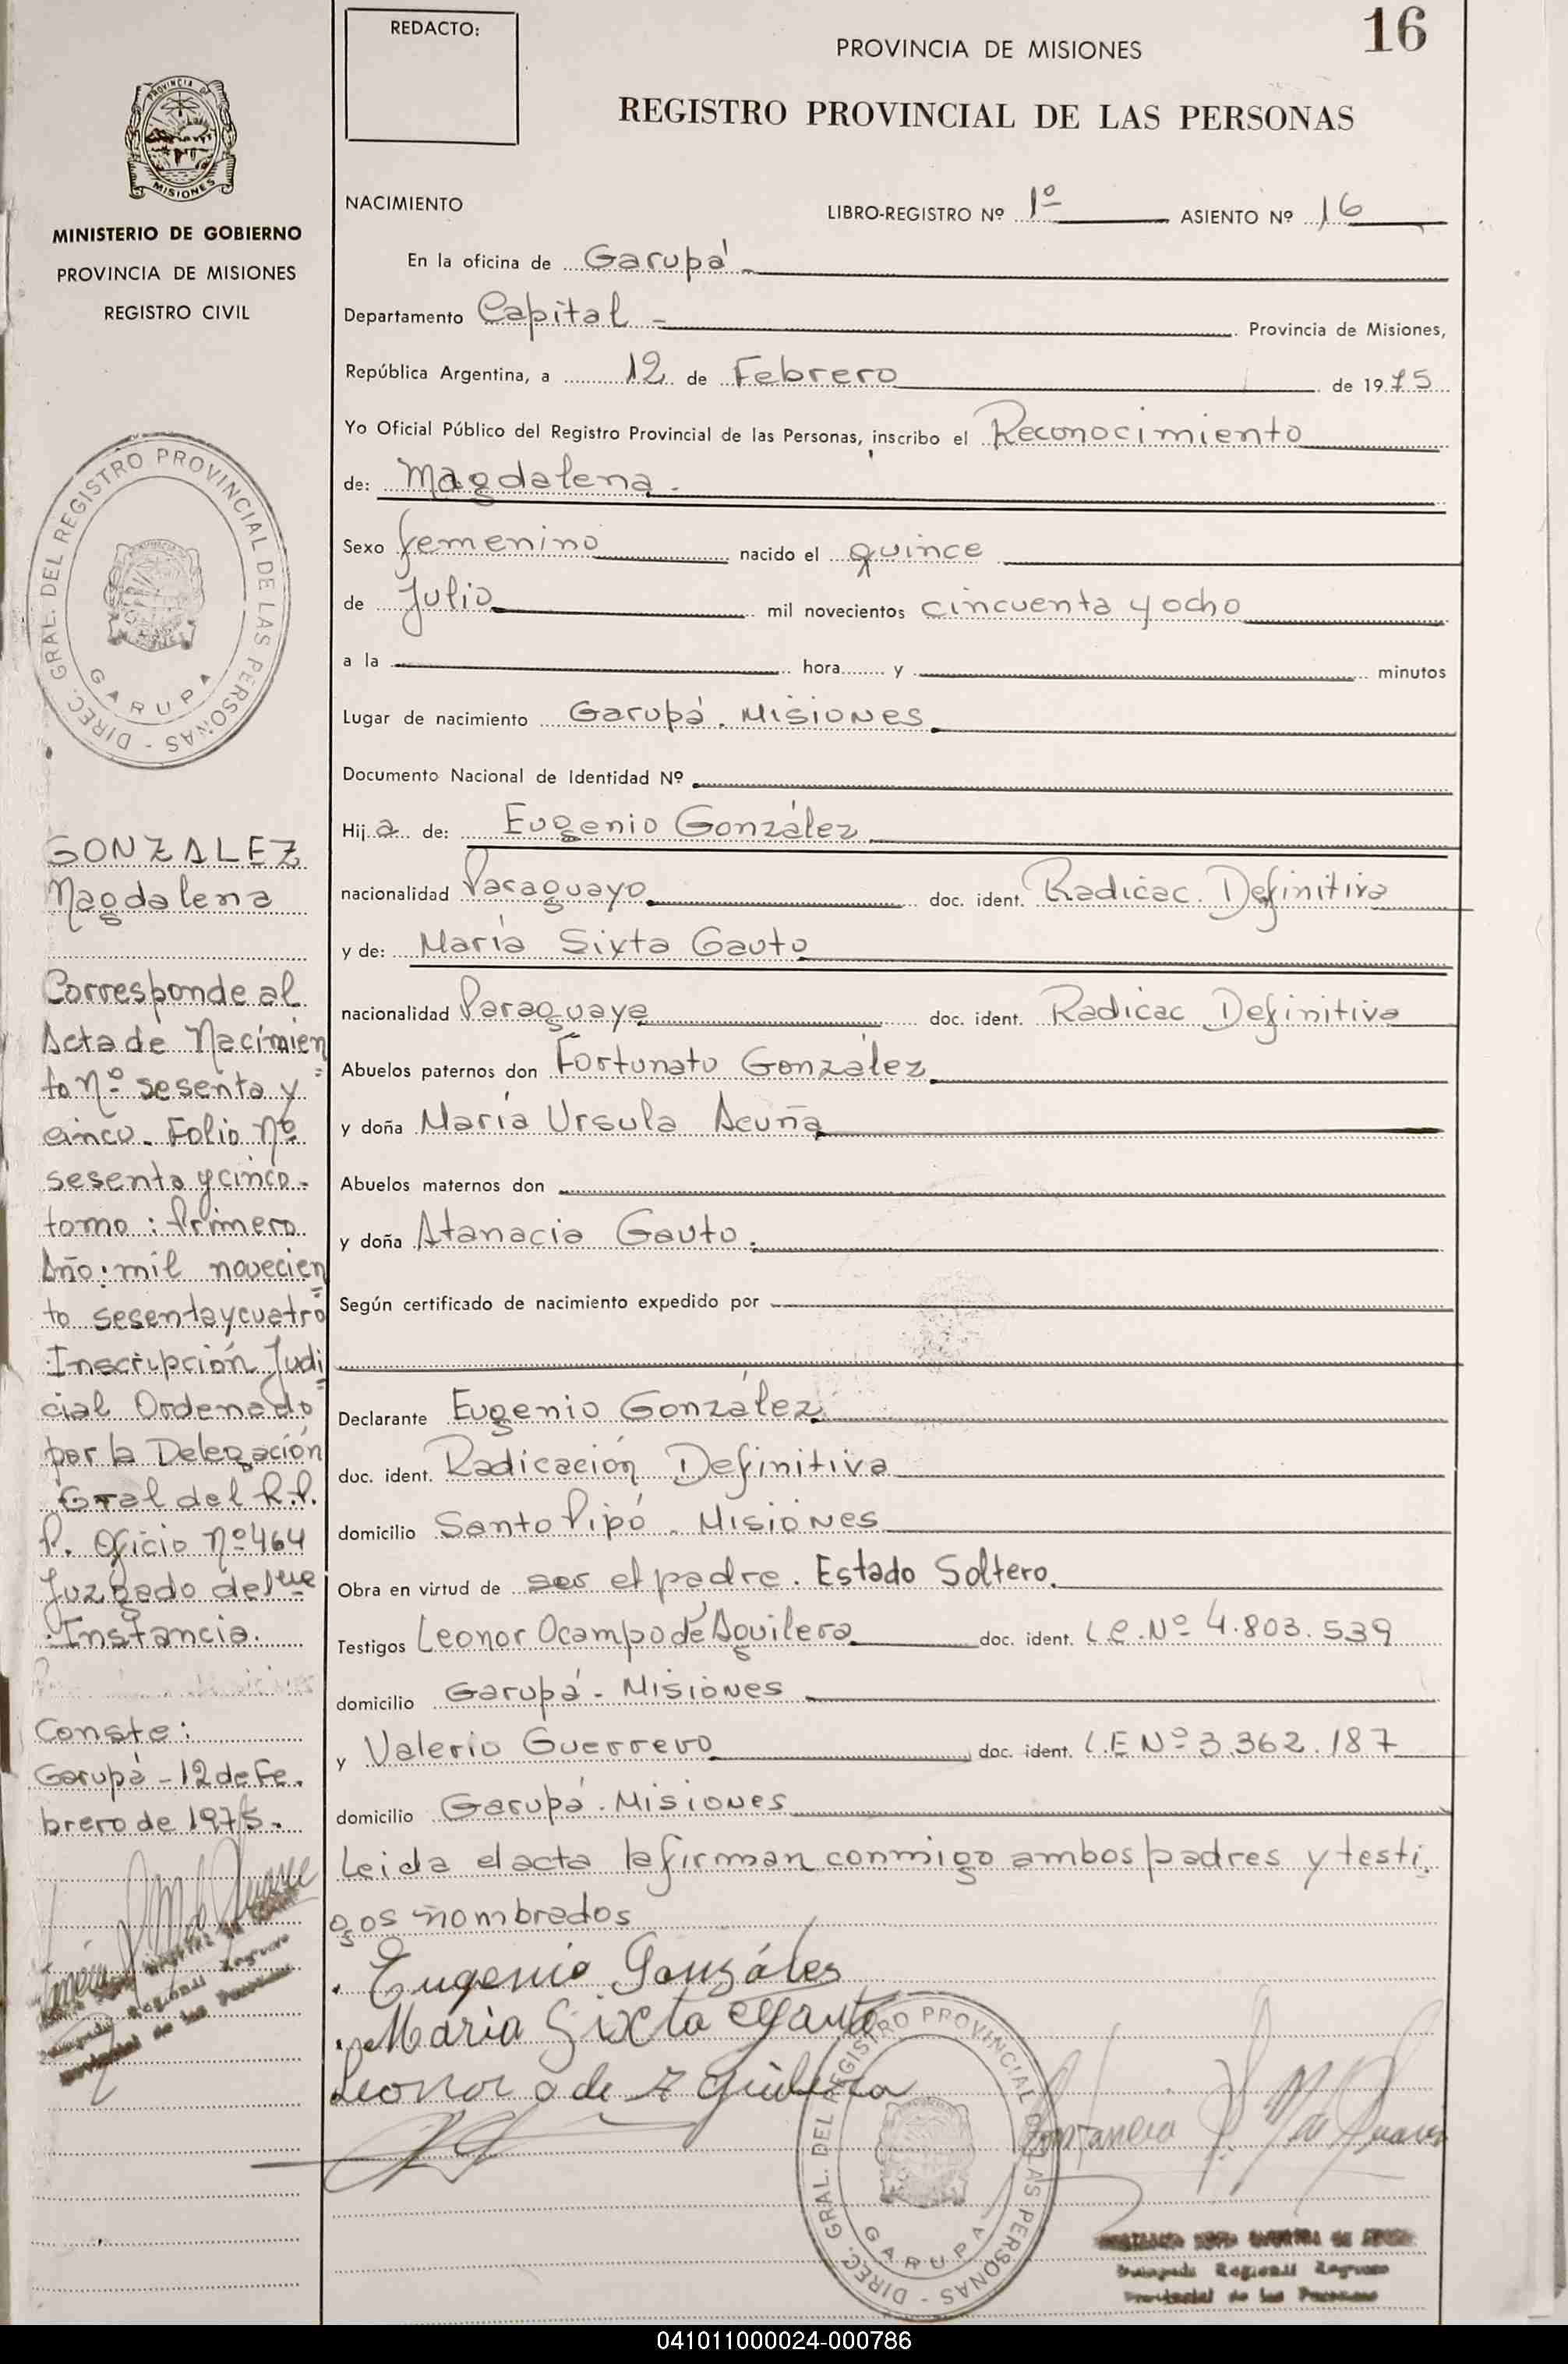 REDACTO:
16
PROVINCIA DE MISIONES
REGISTRO PROVINCIAL DE LAS PERSONAS
PROVINCIA DE
MISIONES
MINISTERIO DE GOBIERNO
PROVINCIA DE MISIONES
REGISTRO CIVIL
NACIMIENTO LIBRO-REGISTRO Nº 1º ASIENTO Nº 16
En la oficina de Garupá
Departamento Capital - Provincia de Misiones,
República Argentina, a 12 de Febrero de 1975
Yo Oficial Público del Registro Provincial de las Personas, inscribo el Reconocimiento
de: Magdalena.
Sexo femenino nacido el quince
de Julio mil novecientos cincuenta y ocho
a la hora y minutos
Lugar de nacimiento Garupá. Misiones
Documento Nacional de Identidad Nº
Hija de: Eugenio González
nacionalidad Paraguayo doc. ident. Radicac. Definitiva
y de: María Sixta Gauto
nacionalidad Paraguaya doc. ident. Radicac Definitiva
Abuelos paternos don Fortunato González
y doña María Ursula Acuña
Abuelos maternos don
y doña Atanacia Gauto.
Según certificado de nacimiento expedido por
Declarante Eugenio González
doc. ident. Radicación Definitiva
domicilio Santo Pipó. Misiones
Obra en virtud de ser el padre. Estado Soltero.
Testigos Leonor Ocampo de Aguilera doc. ident. L.C. Nº 4.803.539
domicilio Garupá - Misiones
y Valerio Guerrero doc. ident. L.E Nº 3.362.187
domicilio Garupá. Misiones
Leida el acta la firman conmigo ambos padres y testi
gos nombrados
Eugenio Gonzáles
María Sixta Gauto
Leonor O de Aguilera
DIREC. GRAL. DEL REGISTRO PROVINCIAL DE LAS PERSONAS -
GARUPA
GONZALEZ
Magdalena
Corresponde al
Acta de Nacimien
to Nº sesenta y
cinco. Folio Nº
sesenta y cinco.
tomo: Primero
Año: mil novecien
to sesenta y cuatro
Inscripción Judi
cial Ordenado
por la Delegación
Gral del R.P.
P. Oficio Nº 464
Juzgado de 1
Instancia.
Conste:
Garupá - 12 de Fe.
brero de 1975.
DIREC. GRAL. DEL REGISTRO PROVINCIAL DE LAS PERSONAS -
GARUPA
Delegada Regional Registro
Provincial de las Personas
041011000024-000786